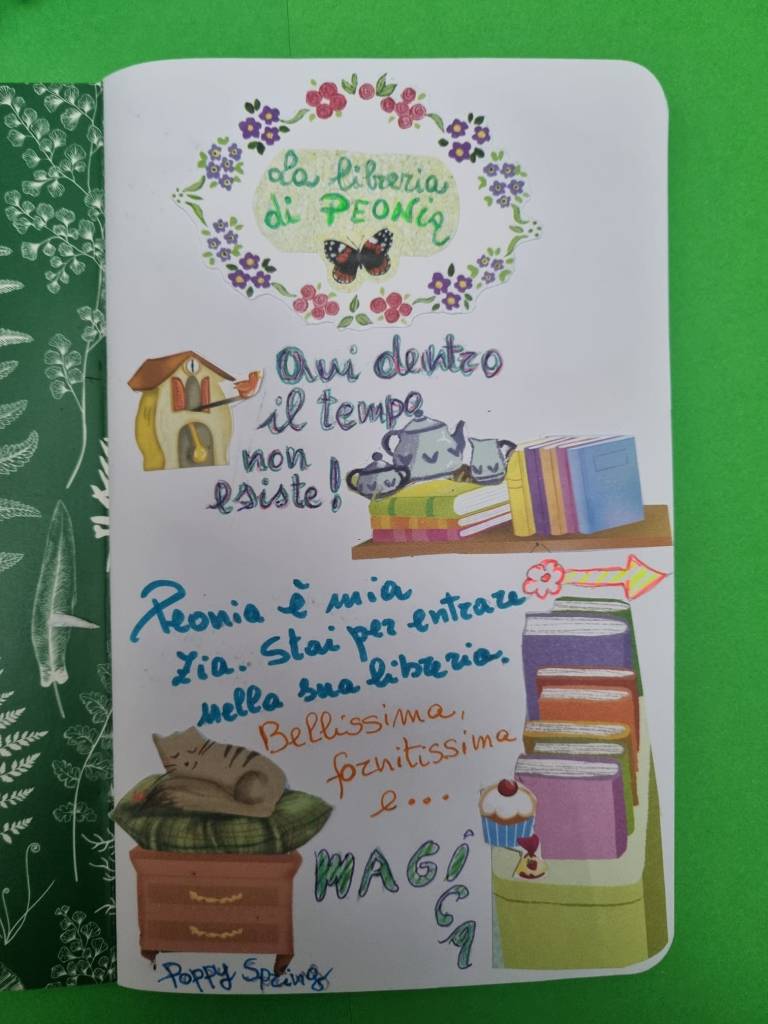 La libreria
di PEONIA
Qui dentro
il tempo
non
esiste!
Peonia è mia
zia.. Stai per entrare
nella sua libreria.
Bellissima,
fornitissima
e...
MAGICA
Poppy Spring